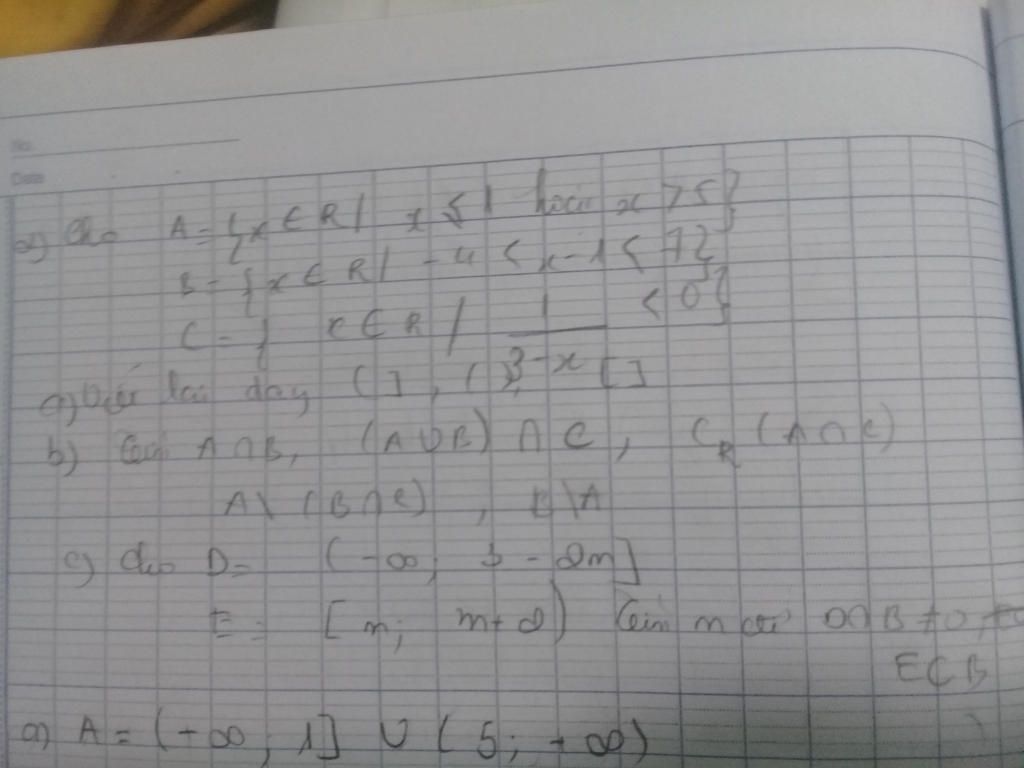 No.
Date
a) Cho A = { x ∈ R / x ≤ 1 hoặc x > 5 }
B = { x ∈ R / - 4 < x - 1 < 7 }
C = { x ∈ R / 1/(3 - x) < 0 }
a) Viết lại dạng ( ] , ( ) , [ ]
b) tìm A ∩ B, (A ∪ B) ∩ C, C_R (A ∩ C)
A \ (B ∩ C) , B \ A
c) cho D = (-∞; 3 - 2m]
E = [m; m + 2) tìm m
E ⊂ B
a) A = (+∞; 1] ∪ (5; +∞)